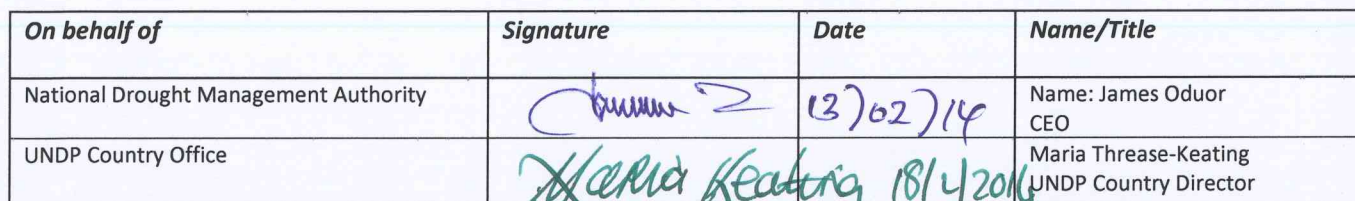 On behalf of Signature Date Name/Title
National Drought Management Authority 13/02/14 Name: James Oduor
CEO
UNDP Country Office Maria Keating 18/4/2014 Maria Threase-Keating
UNDP Country Director